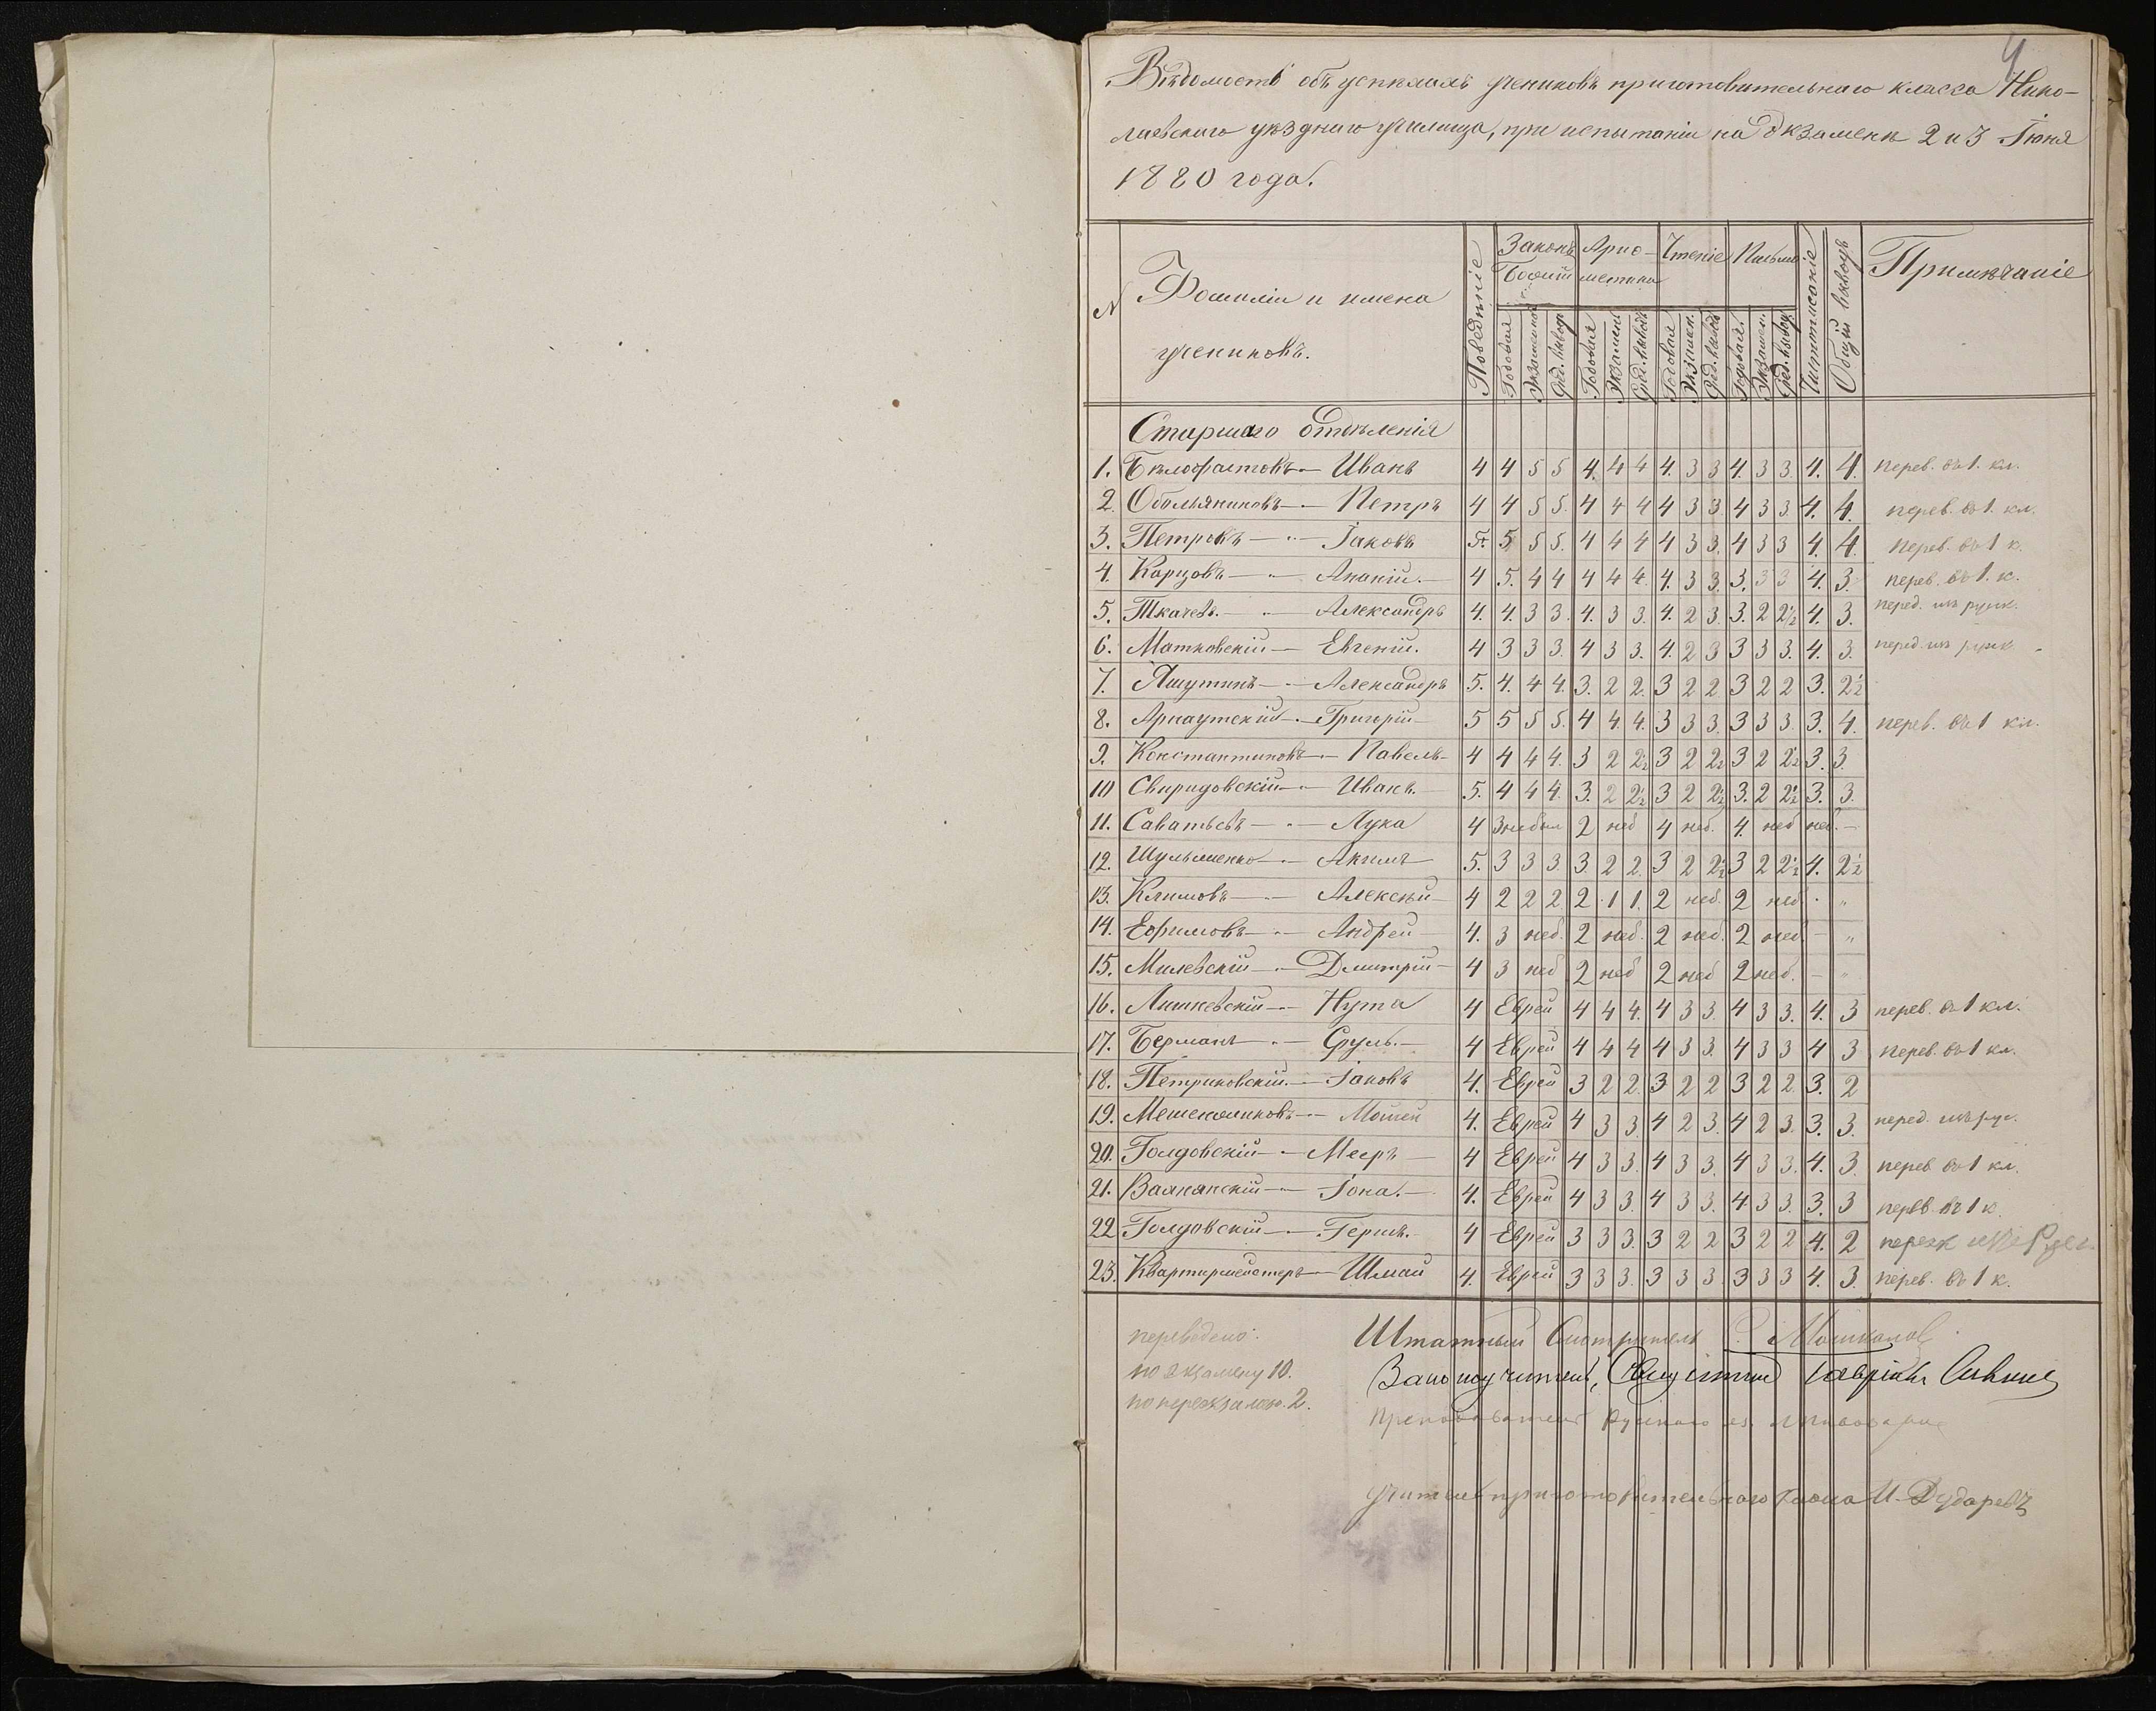 4
Вѣдомость объ успѣхахъ учениковъ приготовительнаго класса Нико-
лаевскаго уѣзднаго училища, при испытаніи на экзаменѣ 2 и 3 Іюня
1880 года.
N Фамиліи и имена учениковъ. Поведеніе Законъ Божій Арие-метика Чтеніе Письмо Чистописаніе Общій выводъ Примѣчаніе
Годовая Экзаменъ Сред. выводъ Годовая Экзаменъ Сред. выводъ Годовая Экзамен. Сред. выводъ Годовая Экзамен. Сред. вывод.
Старшаго отдѣленія
1. Бѣлофастовъ — Иванъ 4 4 5 5 4. 4 4 4. 3 3 4. 3 3. 4. 4. перев. въ 1. кл.
2. Обольяниновъ — Петръ 4 4 5 5. 4 4 4 4 3 3. 4 3 3. 4. 4. перев. въ 1. кл.
3. Петровъ — Іаковъ 5. 5 5 5. 4 4 4 4 3 3. 4 3 3 4. 4. перев. въ 1 к.
4. Карцовъ — Ананій. 4 5. 4 4 4 4 4. 4. 3 3. 3. 3 3 4. 3. перев. въ 1. к.
5. Ткачевъ. — Александръ 4. 4. 3 3. 4. 3 3. 4. 2 3. 3. 2 2½ 4. 3. перед. изъ русск.
6. Матковскій — Евгеній. 4 3 3 3. 4 3 3. 4. 2 3 3 3 3. 4. 3. перед. изъ русск
7. Яшутинъ — Александръ 5. 4. 4 4. 3. 2 2. 3 2 2 3 2 2 3. 2½
8. Арнаутскій — Григорій 5 5 5 5. 4 4. 4. 3 3 3. 3 3 3. 3. 4. перев. въ 1 кл.
9. Константиновъ — Павелъ 4 4 4 4. 3 2 2½ 3 2 2½ 3 2 2½ 3. 3.
10 Свиридовскій — Иванъ. 5. 4 4 4. 3. 2 2½ 3 2 2½ 3. 2 2½ 3. 3.
11. Саватьевъ — Лука 4 3 не был 2 неб 4 неб. 4. неб неб. —
12. Шульменко — Акимъ 5. 3 3 3 3. 2 2. 3 2 2½ 3 2 2½ 4. 2½
13. Климовъ — Алексѣй 4 2 2 2 2 1 1. 2 неб. 2 неб. „
14. Ефимовъ — Андрей 4. 3 неб. 2 неб. 2 неб. 2 неб. — „
15. Милевскій — Дмитрій 4 3 неб 2 неб 2 неб 2 неб. — „
16. Лишневскій — Нута 4 Еврей 4 4 4. 4 3 3. 4 3 3. 4. 3 перев. въ 1 кл.
17. Берманъ — Сруль. 4 Еврей 4 4 4 4 3 3. 4 3 3 4 3 перев. въ 1 кл.
18. Петриковскій — Іаковъ 4. Еврей 3 2 2. 3 2 2 3 2 2. 3. 2
19. Мешениковъ — Мошей 4. Еврей 4 3 3. 4 2 3. 4 2 3. 3. 3. перед. изъ рус.
20. Голдовскій — Мееръ 4 Еврей 4 3 3. 4 3 3. 4 3 3. 4. 3. перев въ 1 кл.
21. Валянскій — Іона. 4. Еврей 4 3 3. 4 3 3. 4. 3 3. 3. 3 перев. въ 1 к.
22 Голдовскій — Гершъ. 4 Еврей 3 3 3. 3 2 2 3 2 2 4. 2 перезк изъ Русс.
23. Квартирмейстеръ — Шмай 4. Еврей 3 3 3. 3 3 3. 3 3 3 4. 3. перев. въ 1 к.
переведено:
по экзамену 10.
по переэкзамен. 2.
Штатный Смотритель
Законоучитель, Священникъ Гавріилъ
Преподаватель Русскаго яз.
Учитель приготовительнаго класса И. Дударевъ